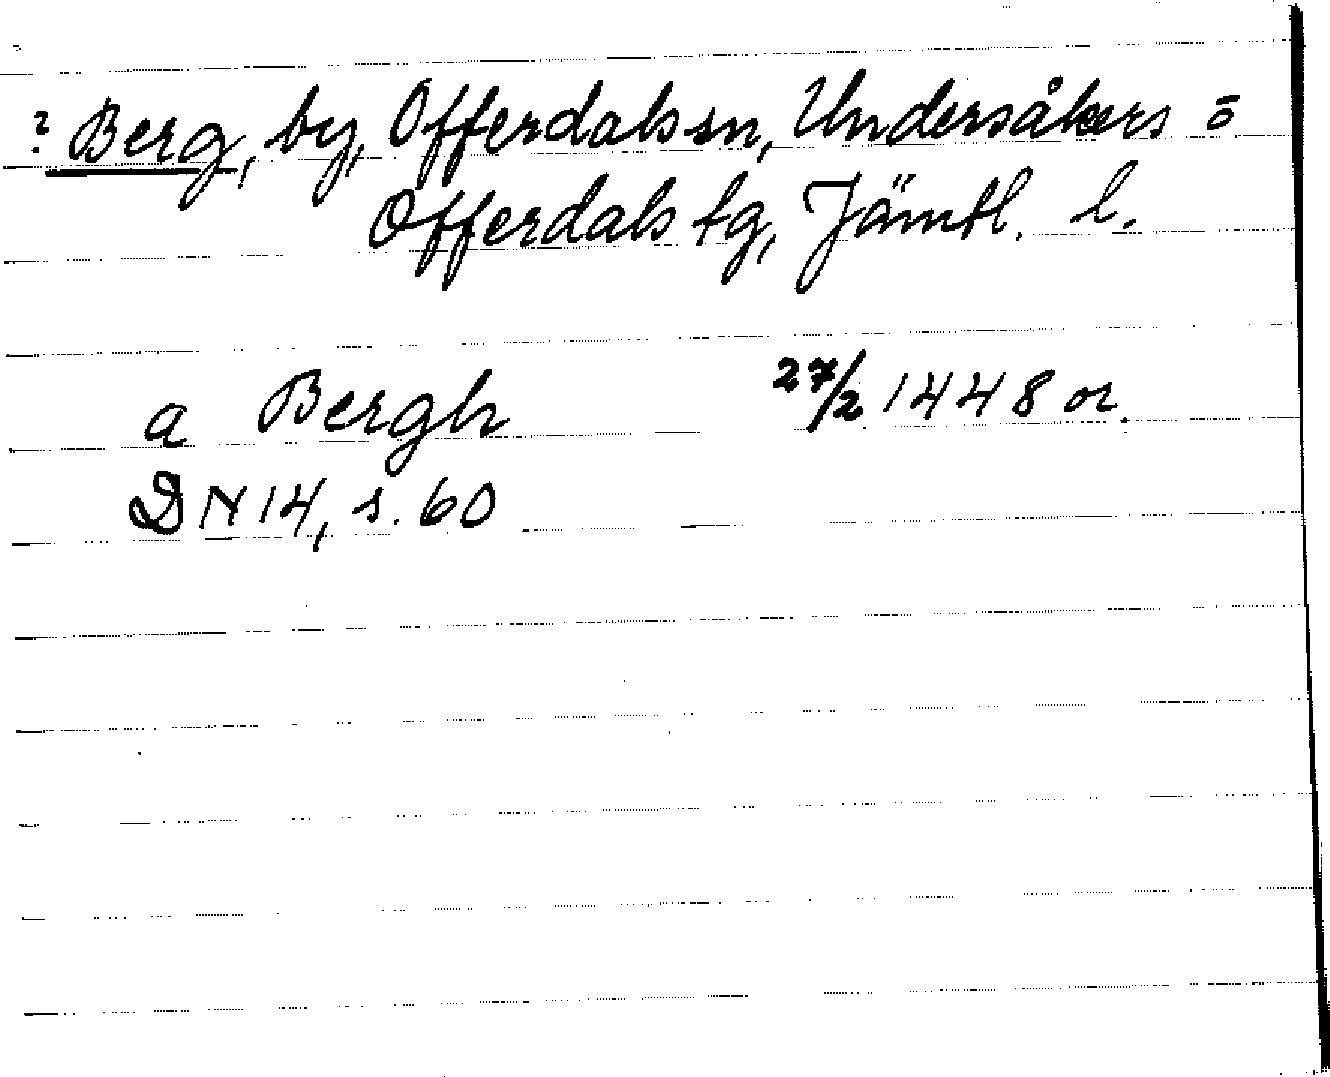 ? Berg, by, Offerdals sn, Undersåkers =
Offerdals tg, Jämtl. l.
a Bergh 27/2 1448 or.
DN 14, s. 60